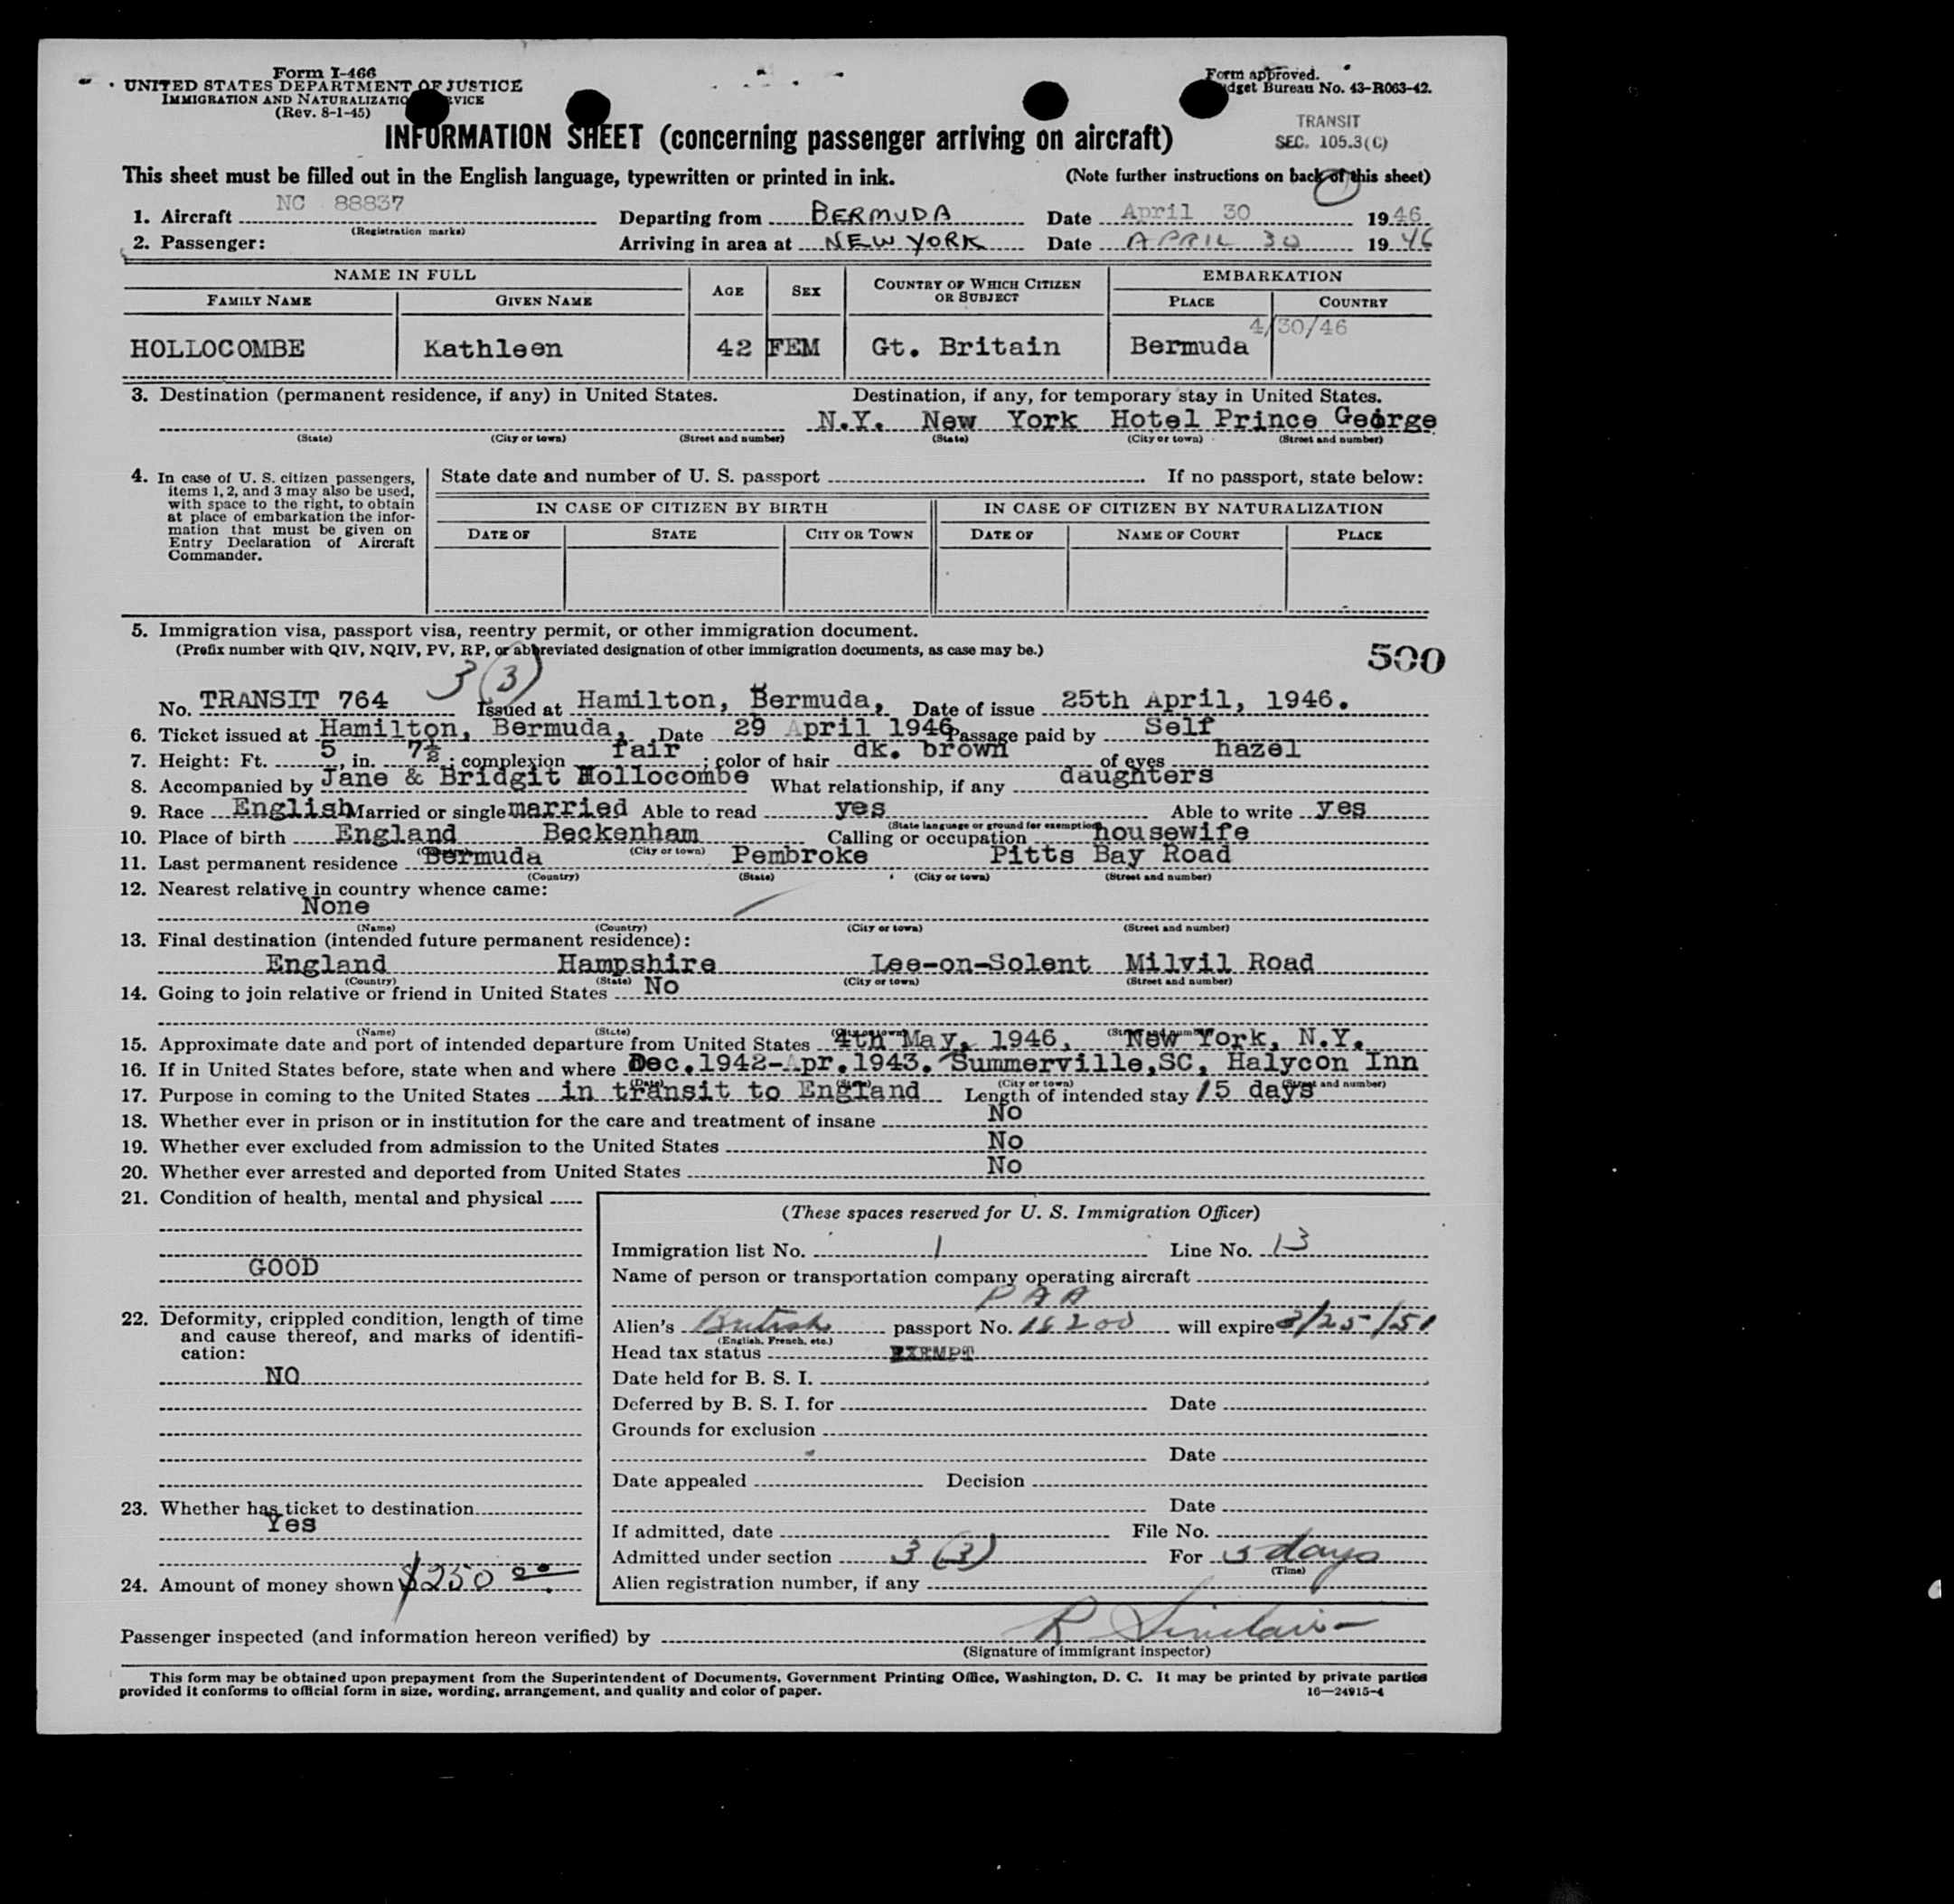 Form I-466
UNITED STATES DEPARTMENT OF JUSTICE
IMMIGRATION AND NATURALIZATION SERVICE
(Rev. 8-1-45)
Form approved.
Budget Bureau No. 43-R063-42.
TRANSIT
SEC. 105.3(C)
INFORMATION SHEET (concerning passenger arriving on aircraft)
This sheet must be filled out in the English language, typewritten or printed in ink. (Note further instructions on back of this sheet)
1. Aircraft NC 88837 Departing from BERMUDA Date April 30 1946
(Registration marks)
2. Passenger: Arriving in area at NEW YORK Date APRIL 30 1946
NAME IN FULL AGE SEX COUNTRY OF WHICH CITIZEN OR SUBJECT EMBARKATION
FAMILY NAME GIVEN NAME PLACE COUNTRY
4/30/46
HOLLOCOMBE Kathleen 42 FEM Gt. Britain Bermuda
3. Destination (permanent residence, if any) in United States. Destination, if any, for temporary stay in United States.
N.Y. New York Hotel Prince George
(State) (City or town) (Street and number) (State) (City or town) (Street and number)
4. In case of U. S. citizen passengers, items 1, 2, and 3 may also be used, with space to the right, to obtain at place of embarkation the information that must be given on Entry Declaration of Aircraft Commander.
State date and number of U. S. passport If no passport, state below:
IN CASE OF CITIZEN BY BIRTH IN CASE OF CITIZEN BY NATURALIZATION
DATE OF STATE CITY OR TOWN DATE OF NAME OF COURT PLACE
5. Immigration visa, passport visa, reentry permit, or other immigration document.
(Prefix number with QIV, NQIV, PV, RP, or abbreviated designation of other immigration documents, as case may be.)
500
3(3)
No. TRANSIT 764 Issued at Hamilton, Bermuda, Date of issue 25th April, 1946.
6. Ticket issued at Hamilton, Bermuda, Date 29 April 1946 Passage paid by Self
7. Height: Ft. 5, in. 7½; complexion fair; color of hair dk. brown of eyes hazel
8. Accompanied by Jane & Bridgit Hollocombe What relationship, if any daughters
9. Race English Married or single married Able to read yes Able to write yes
(State language or ground for exemption)
10. Place of birth England Beckenham Calling or occupation housewife
(Country) (City or town)
11. Last permanent residence Bermuda Pembroke Pitts Bay Road
(Country) (State) (City or town) (Street and number)
12. Nearest relative in country whence came:
None
(Name) (Country) (City or town) (Street and number)
13. Final destination (intended future permanent residence):
England Hampshire Lee-on-Solent Milvil Road
(Country) (State) (City or town) (Street and number)
14. Going to join relative or friend in United States No
(Name) (State) (City or town) (Street and number)
15. Approximate date and port of intended departure from United States 4th May, 1946, New York, N.Y.
16. If in United States before, state when and where Dec.1942-Apr.1943. Summerville,SC, Halycon Inn
(Date) (State) (City or town) (Street and number)
17. Purpose in coming to the United States in transit to England Length of intended stay 15 days
18. Whether ever in prison or in institution for the care and treatment of insane No
19. Whether ever excluded from admission to the United States No
20. Whether ever arrested and deported from United States No
21. Condition of health, mental and physical
GOOD
22. Deformity, crippled condition, length of time and cause thereof, and marks of identification:
NO
23. Whether has ticket to destination
Yes
24. Amount of money shown $250 00
(These spaces reserved for U. S. Immigration Officer)
Immigration list No. 1 Line No. 13
Name of person or transportation company operating aircraft
PAA
Alien's British passport No. 16200 will expire 3/25/51
(English, French, etc.)
Head tax status EXEMPT
Date held for B. S. I.
Deferred by B. S. I. for Date
Grounds for exclusion
Date
Date appealed Decision
Date
If admitted, date File No.
Admitted under section 3(3) For 5 days
(Time)
Alien registration number, if any
Passenger inspected (and information hereon verified) by R Sinclair
(Signature of immigrant inspector)
This form may be obtained upon prepayment from the Superintendent of Documents, Government Printing Office, Washington, D. C. It may be printed by private parties
provided it conforms to official form in size, wording, arrangement, and quality and color of paper. 16—24915-4